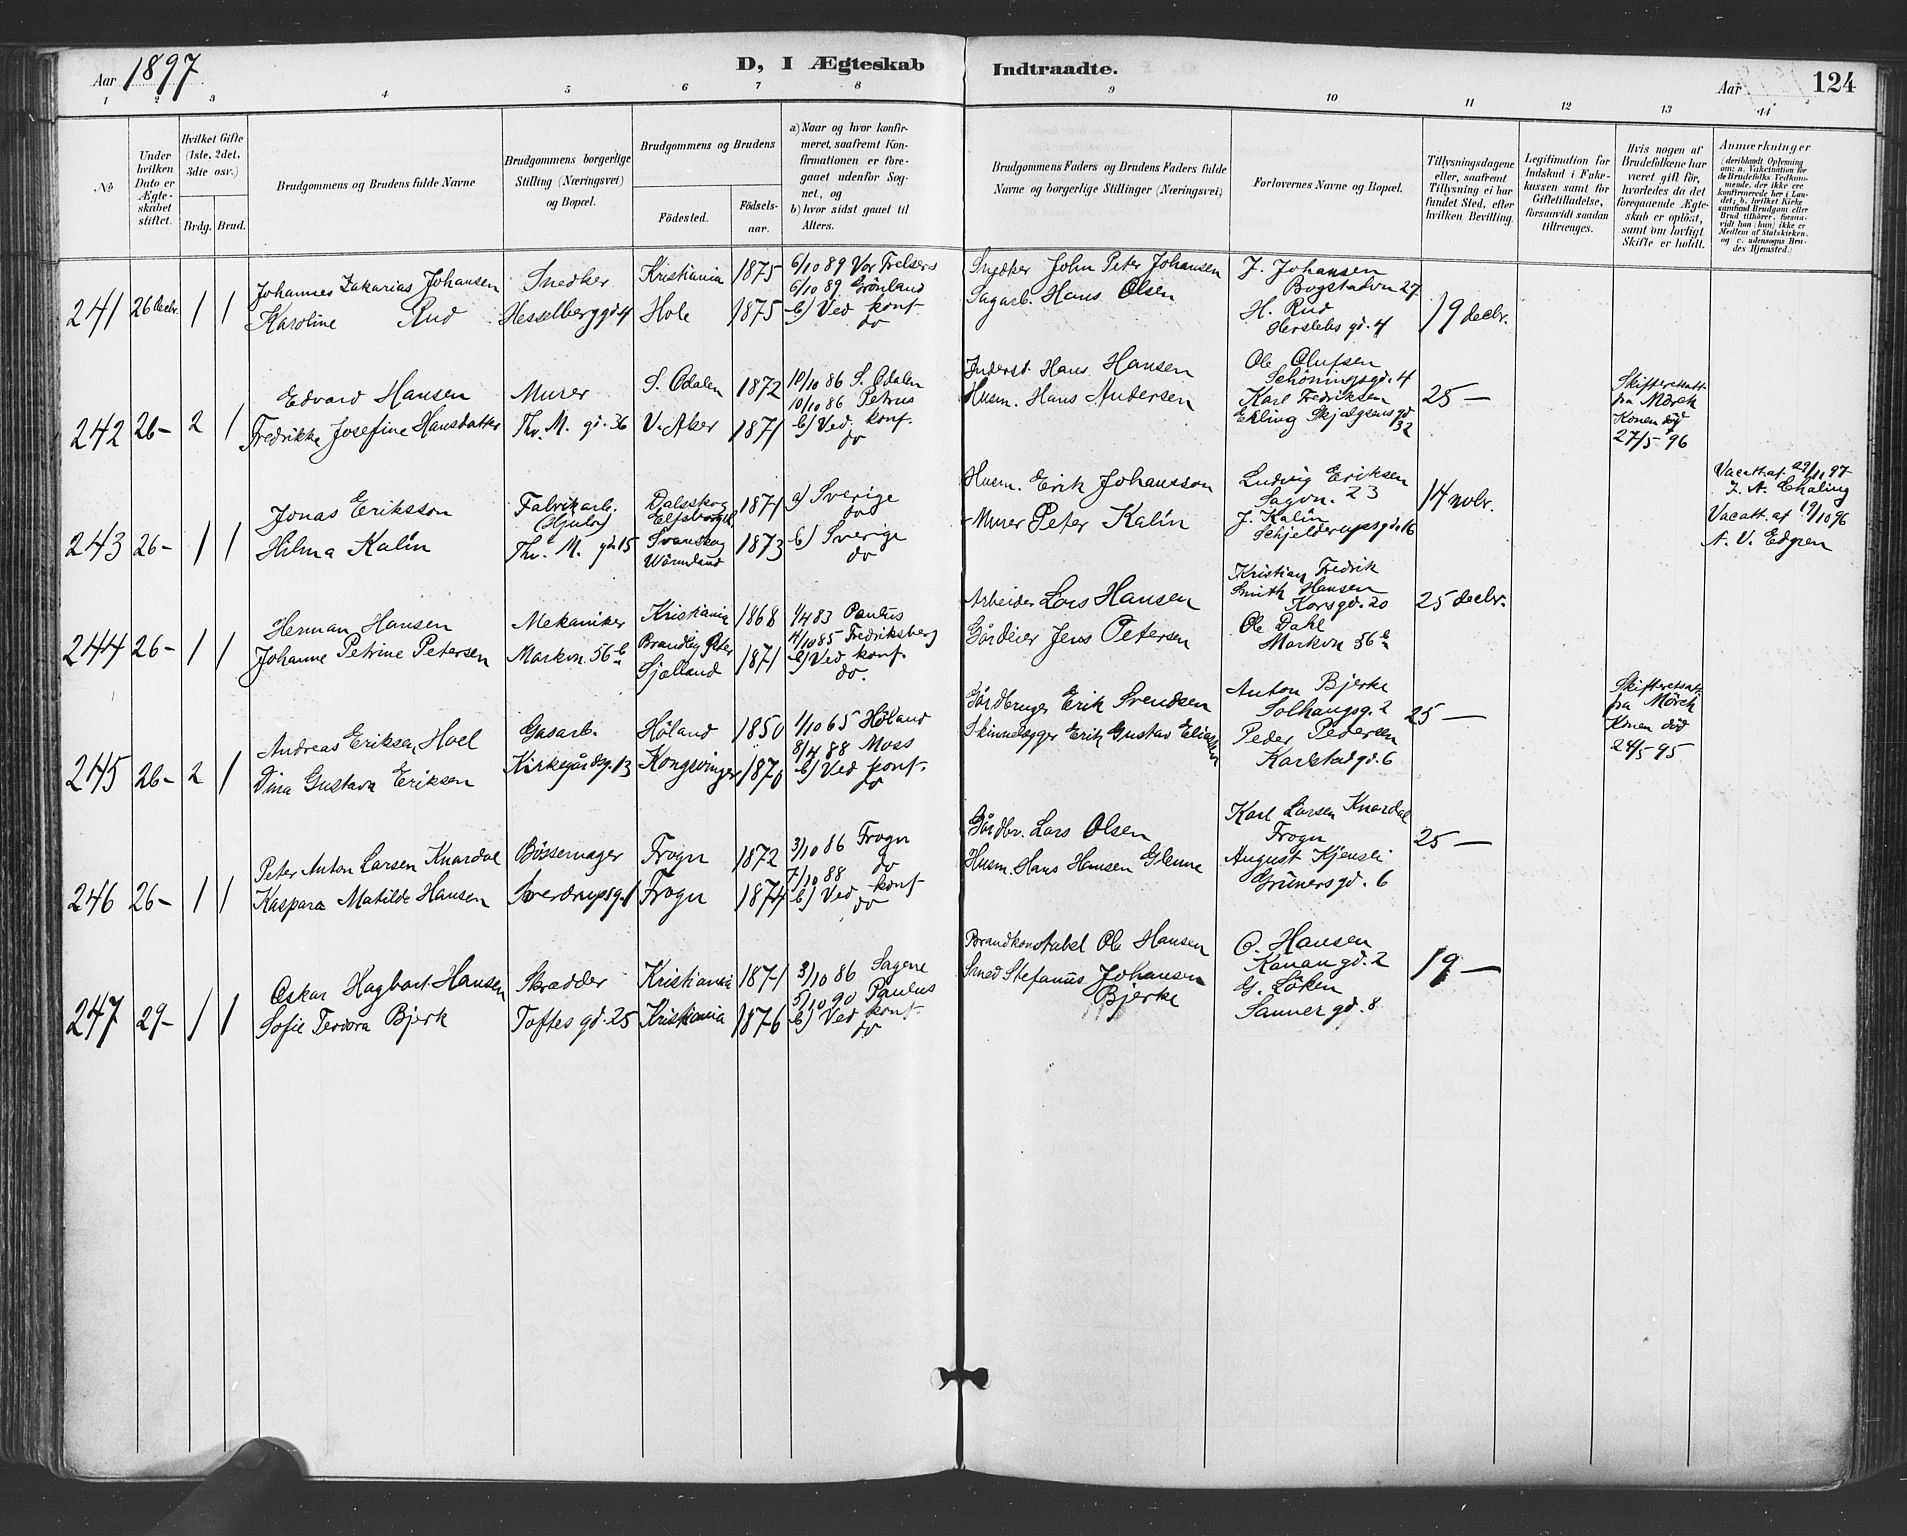 Aar 1897 D, I Ægteskab Indtraadte. Aar 124
1 2 3 4 5 6 7 8 9 10 11 12 13 14
No
Under hvilken Dato er Ægteskabet stiftet.
Hvilket Gifte (1ste, 2det, 3die osv.)
Brdg. Brud.
Brudgommens og Brudens fulde Navne
Brudgommens borgerlige Stilling (Næringsvei) og Bopæl.
Brudgommens og Brudens
Födested. Födselsaar.
a) Naar og hvor konfirmeret, saafremt Konfirmationen er foregaaet udenfor Sognet, og
b) hvor sidst gaaet til Alters.
Brudgommens Faders og Brudens Faders fulde Navne og borgerlige Stillinger (Næringsvei)
Forlovernes Navne og Bopæl.
Tillysningsdagene eller, saafremt Tillysning ei har fundet Sted, efter hvilken Bevilling.
Legitimation for Indskud i Enkekassen samt for Giftetilladelse, forsaavidt saadan tiltrænges.
Hvis nogen af Brudefolkene har været gift før, hvorledes da det foregaaende Ægteskab er oplöst, samt om lovligt Skifte er holdt.
Anmærkninger
(deriblandt Oplysning om: a. Vakcination for de Brudefolks Vedkommende, der ikke ere konfirmerede her i Landet; b. hvilket Kirkesamfund Brudgom eller Brud tilhører, forsaavidt han (hun) ikke er Medlem af Statskirken, og c. udensogns Brudes Hjemsted.
241 26 Decbr. 1 1
Johannes Zakarias Johansen Snedker Kristiania 1875 6/10 89 Vor Frelsers
Karoline Rud Hesselberggd 4 Hole 1875 6/10 89 Grönland
b) Ved konf.
do
Snedker John Peter Johansen
Sagarb. Hans Olsen
J. Johansen
Bogstadvn 27
H. Rud
Herslebs gd. 4
19 decbr.
242 26 – 2 1
Edvard Hansen Murer S. Odalen 1872 10/10 86 S. Odalen
Fredrikke Josefine Hansdatter Thv. M. gd. 36 V. Aker 1871 10/10 86 Petrus
b) Ved konf.
do
Inderst Hans Hansen
Husm. Hans Andersen
Ole Olufsen
Schöningsgd. 4
Karl Fredriksen
Erling Skjalgsens gd
32
25 –
Skifteretsatt.
fra Mörch
Konen död
27/5 – 96
243 26 – 1 1
Jonas Eriksson Fabrikarb. Dalsskog 1871 a) Sverige
(Hjula) Elfsborgsl. do
Hilma Kalin Thv. M. gd. 15 Svanskog 1873 b) Sverige
Wärmland do
Husm. Erik Johansson
Murer Peter Kalin
Ludvig Eriksen
Sagvn. 23
J. Kalin
Schjelderupsgd. 16
14 novbr.
Vacatt. af 29/11 97
Vacatt. af 19/10 96
A. V. Edgren
244 26 – 1 1
Herman Hansen Mekaniker Kristiania 1868 1/4 83 Paulus
Johanne Petrine Petersen Markvn. 56 b 4/10 85 Fredriksberg
Sjælland 1871 b) Ved konf.
do.
Arbeider Lars Hansen
Gårdeier Jens Petersen
Kristian Fredrik
Smith Hansen
Korsgd. 20
Ole Dahl
Markvn 56 b
25 decbr.
245 26 – 2 1
Andreas Eriksen Hoel Gasarb. Höland 1850 1/10 65 Höland
Vina Gustava Eriksen Kirkegårdsg. 13 Kongsvinger 1870 8/4 88 Moss
b) Ved konf.
do
Gårdbruger Erik Svendsen
Erik Gustav
Anton Bjerke
Solhaugsg. 2
Peder Pedersen
Karlstadgd. 6
25 –
Skifteretsatt.
fra Mörch
Konen död
24/5 – 95
246 26 – 1 1
Peter Anton Larsen Knardal Bössemager Frogn 1872 3/10 86 Frogn
Kaspara Matilde Hansen Sverdrupsg. 1 Frogn 1874 7/10 88 do
b) Ved konf.
do
Gårdbr. Lars Olsen
Husm. Hans Hansen Glenne
Karl Larsen Knardal
Frogn
August Kjensli
Grünersgd. 6
25 –
247 29 – 1 1
Oskar Hagbart Hansen Skrædder Kristiania 1871 3/10 86 Sagene
Sofie Teodora Bjerk Toftes gd. 25 Kristiania 1876 5/10 90 Paulus
b) Ved konf.
do
Brandkonstabel Ole Hansen
Smed Stefanus Johansen
Bjerke
O. Hansen
Kanan gd. 2
G. Löken
Sanner gd. 8
19 –